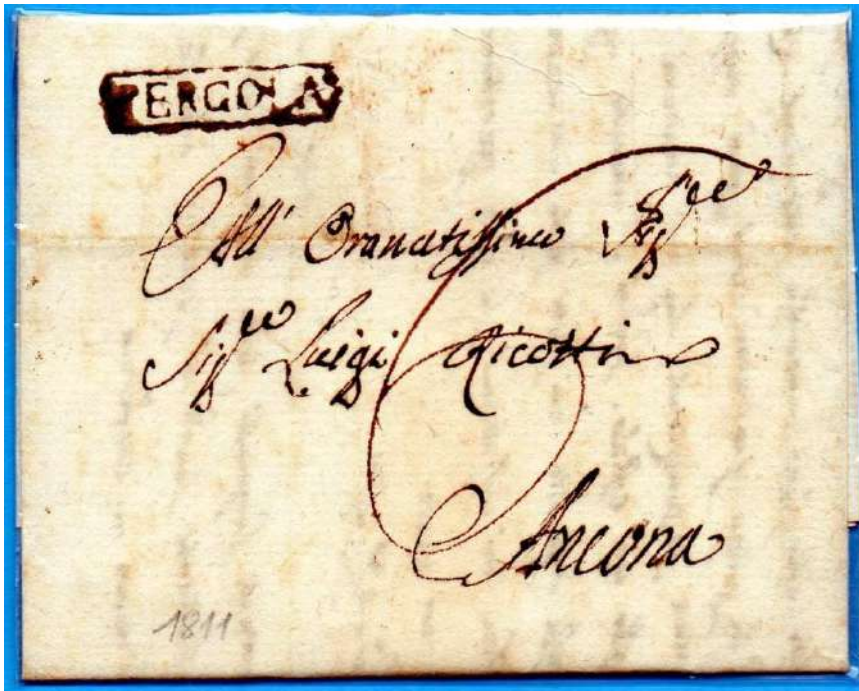 PERGOLA
All' Ornatissimo Sig.re
Sig.re Luigi Ricottini
Ancona
1811